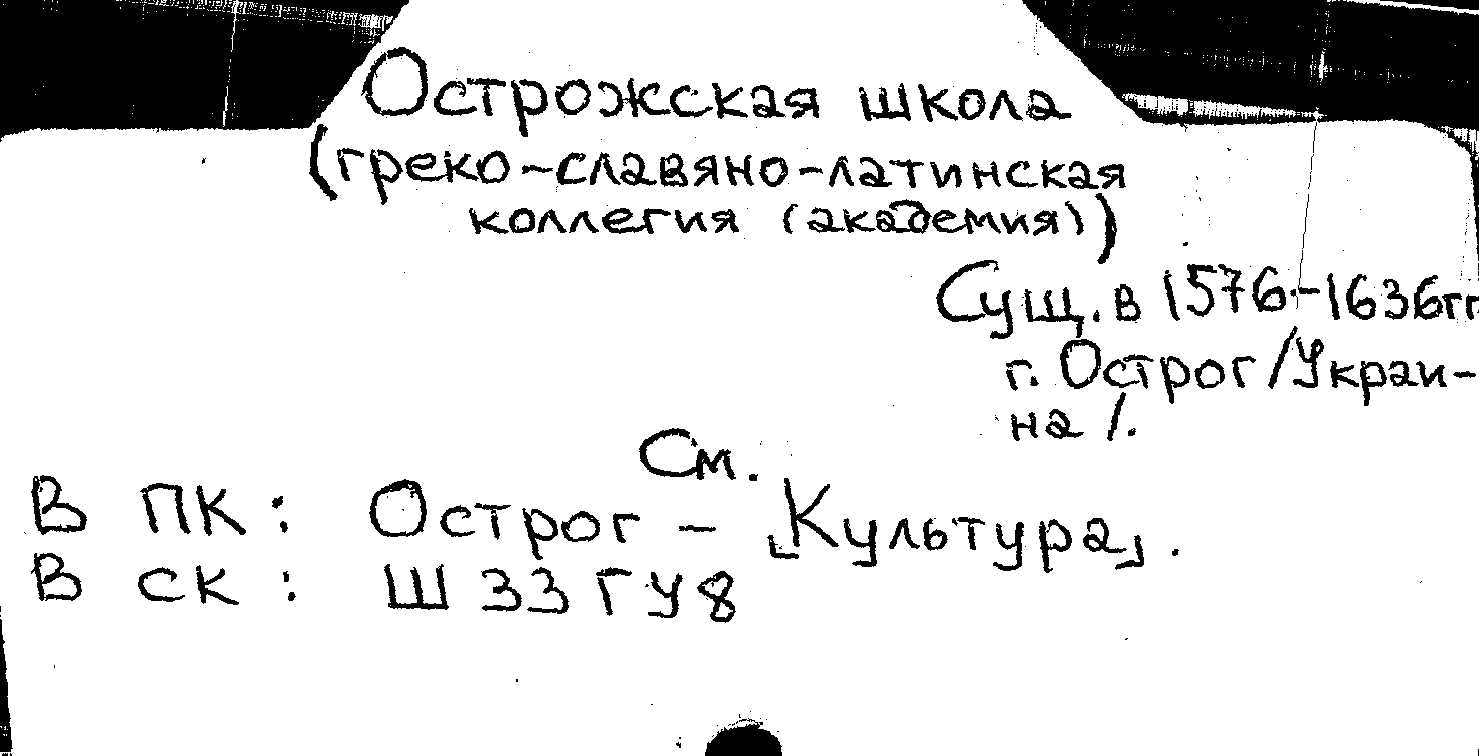 Острожская школа
(греко-славяно-латинская
коллегия (академия))
Сущ. в 1576-1636гг
г. Острог /Украи-
на/.
См.
В ПК: Острог - "Культура".
В СК: Ш33ГУ8